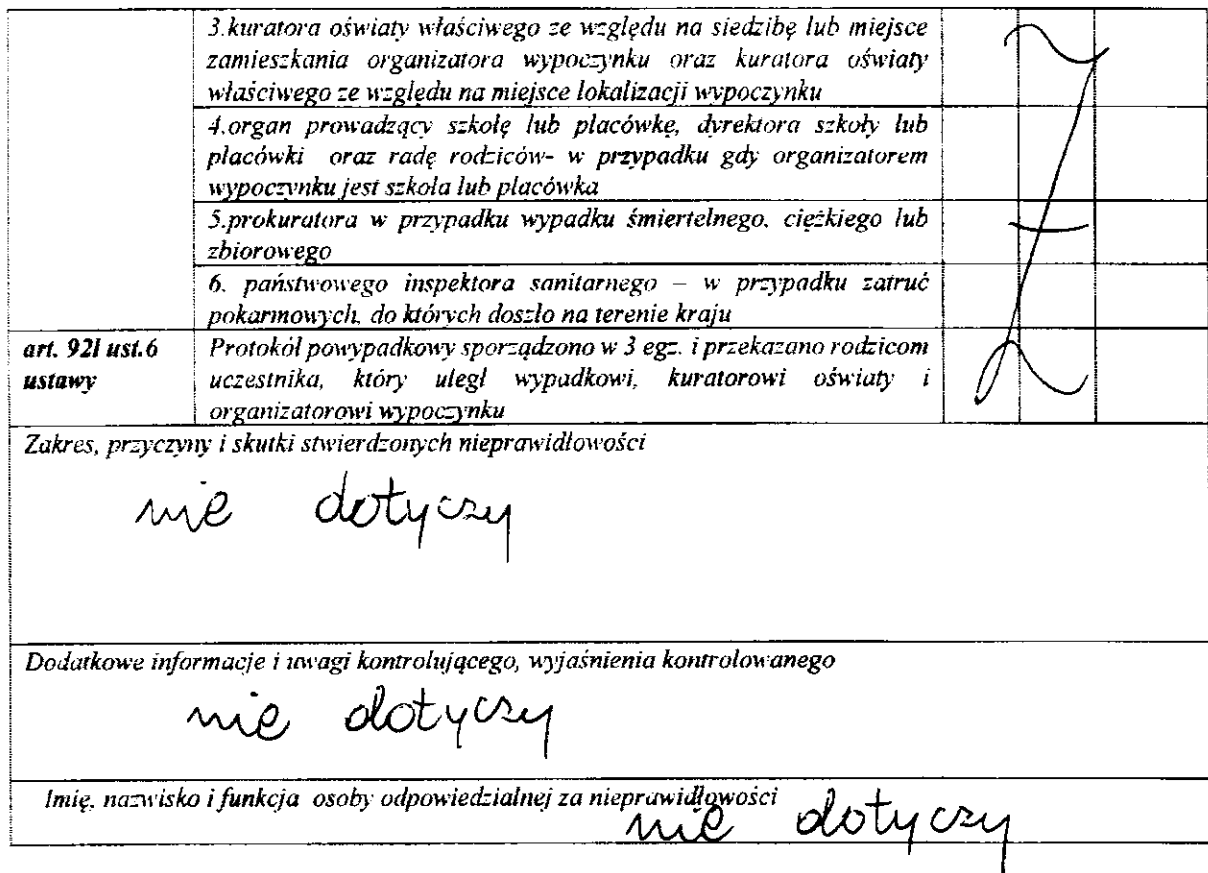 3.kuratora oświaty właściwego ze względu na siedzibę lub miejsce
zamieszkania organizatora wypoczynku oraz kuratora oświaty
właściwego ze względu na miejsce lokalizacji wypoczynku
4.organ prowadzący szkołę lub placówkę, dyrektora szkoły lub
placówki oraz radę rodziców- w przypadku gdy organizatorem
wypoczynku jest szkoła lub placówka
5.prokuratora w przypadku wypadku śmiertelnego, ciężkiego lub
zbiorowego
6. państwowego inspektora sanitarnego – w przypadku zatruć
pokarmowych, do których doszło na terenie kraju
art. 92l ust.6
ustawy
Protokół powypadkowy sporządzono w 3 egz. i przekazano rodzicom
uczestnika, który uległ wypadkowi, kuratorowi oświaty i
organizatorowi wypoczynku
Zakres, przyczyny i skutki stwierdzonych nieprawidłowości
nie dotyczy
Dodatkowe informacje i uwagi kontrolującego, wyjaśnienia kontrolowanego
nie dotyczy
Imię, nazwisko i funkcja osoby odpowiedzialnej za nieprawidłowości
nie dotyczy